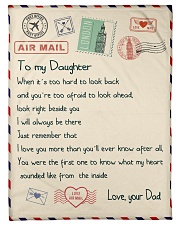 AIR MAIL
To my Daughter
When it's too hard to look back
and you're too afraid to look ahead,
look right beside you
I will always be there
Just remember that
I love you more than you'll ever know after all,
You were the first one to know what my heart
sounded like from the inside
Love, your Dad